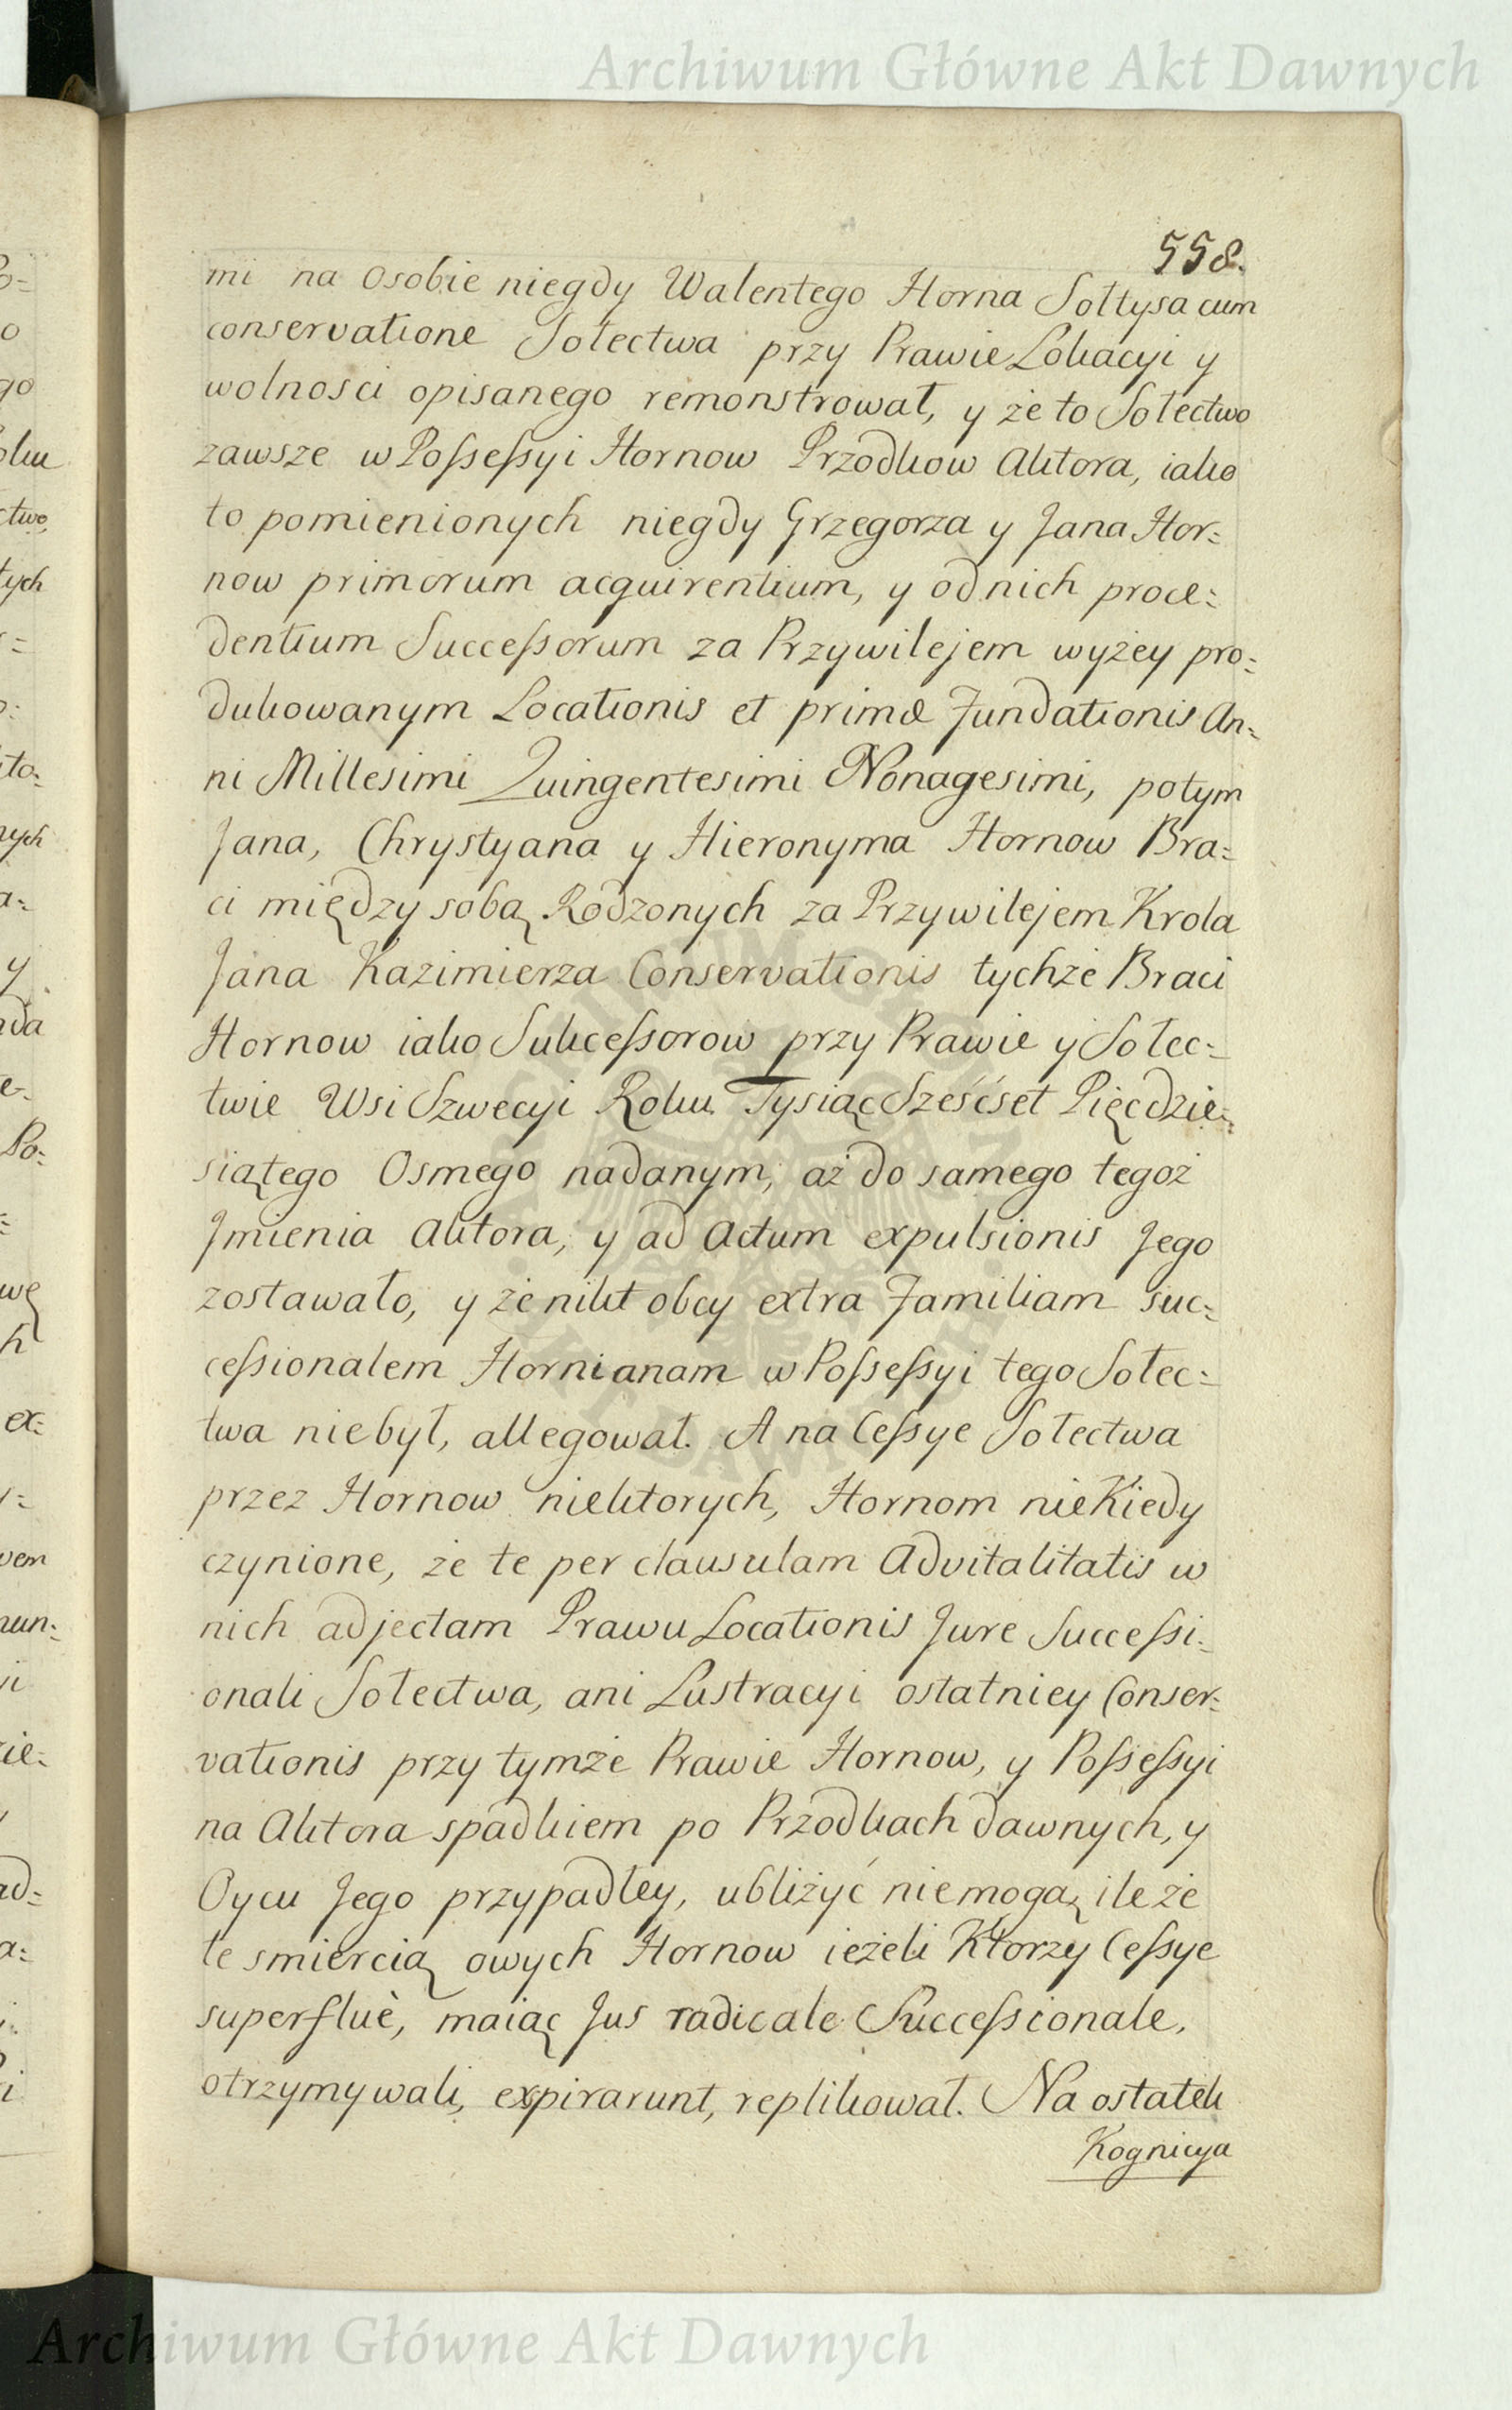 Archiwum Główne Akt Dawnych
558.
mi na osobie niegdy Walentego Horna Sołtysa cum
conservatione Sołectwa przy Prawie Lokacyi y
wolnosci opisanego remonstrował, y że to Sołectwo
zawsze w Possessyi Hornow Przodkow Aktora, iako
to pomienionych niegdy Grzegorza y Jana Hor=
now primorum acquirentium, y od nich proce=
dentium Successorum za Przywilejem wyżey pro=
dukowanym Locationis et primæ Fundationis An=
ni Millesimi Quingentesimi Nonagesimi, potym
Jana, Chrystyana y Hieronyma Hornow Bra=
ci między sobą Rodzonych za Przywilejem Krola
Jana Kazimierza Conservationis tychże Braci
Hornow iako Sukcessorow przy Prawie y Sołec=
twie Wsi Szwecyi Roku Tysiąc Sześćset Pięcdzie=
siątego Osmego nadanym, aż do samego tegoż
Jmienia Aktora, y ad Actum expulsionis Jego
zostawało, y że nikt obcy extra Familiam suc=
cessionalem Hornianam w Possessyi tego Sołec=
twa niebył, allegował. A na Cessye Sołectwa
przez Hornow niektorych, Hornom niekiedy
czynione, że te per clausulam Advitalitatis w
nich adjectam Prawu Locationis Jure Successi=
onali Sołectwa, ani Lustracyi ostatniey Conser=
vationis przy tymże Prawie Hornow, y Possessyi
na Aktora spadkiem po Przodkach dawnych, y
Oycu Jego przypadłey, ubliżyć niemogą ile że
te smiercią owych Hornow ieżeli Ktorzy Cessye
superfluè, maiąc Jus radicale Successionale,
otrzymywali, expirarunt, replikował. Na ostatek
Kognicya
Archiwum Główne Akt Dawnych